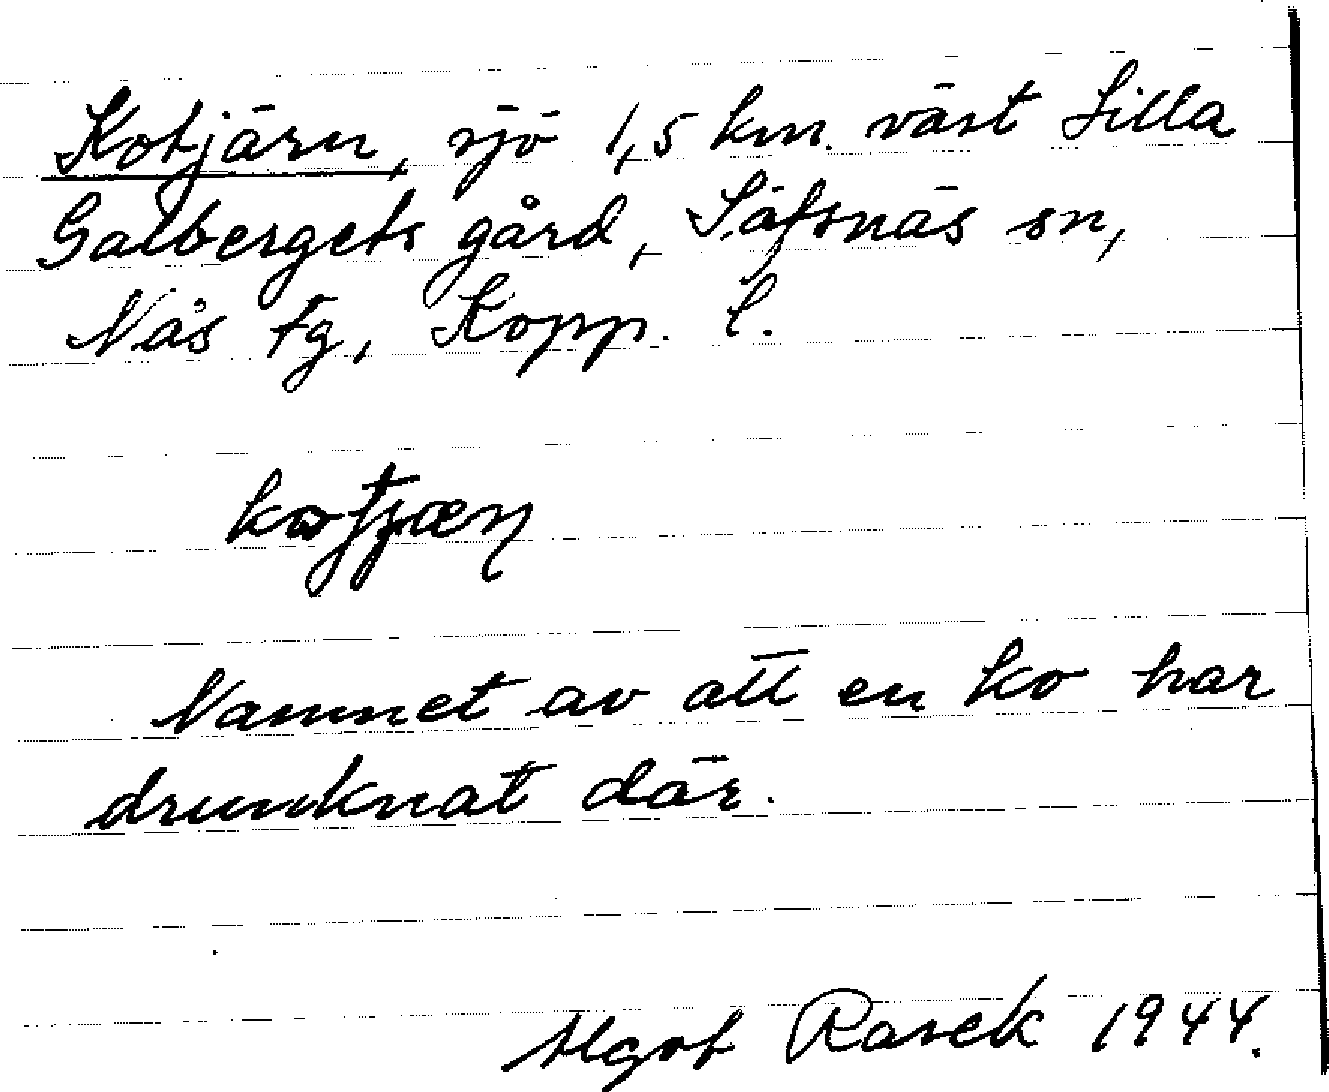 Kotjärn, sjö 1,5 km. väst Lilla
Galbergets gård, Säfsnäs sn,
Nås tg, Kopp. l.
Namnet av att en ko har
drunknat där.
Algot Rasck 1944.